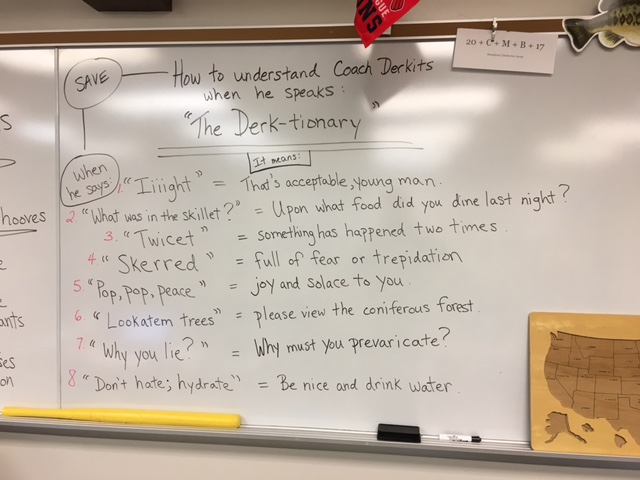 SAVE
How to understand Coach Derkits
when he speaks:
"The Derk-tionary"
When
he says:
It means:
1. "Iiiight" = That's acceptable, young man.
2. "What was in the skillet?" = Upon what food did you dine last night?
3. "Twicet" = something has happened two times.
4 "Skerred" = full of fear or trepidation
5 "Pop, pop, peace" = joy and solace to you.
6. "Lookatem trees" = please view the coniferous forest.
7. "Why you lie?" = Why must you prevaricate?
8 "Don't hate; hydrate" = Be nice and drink water.
hooves
20 + C + M + B + 17